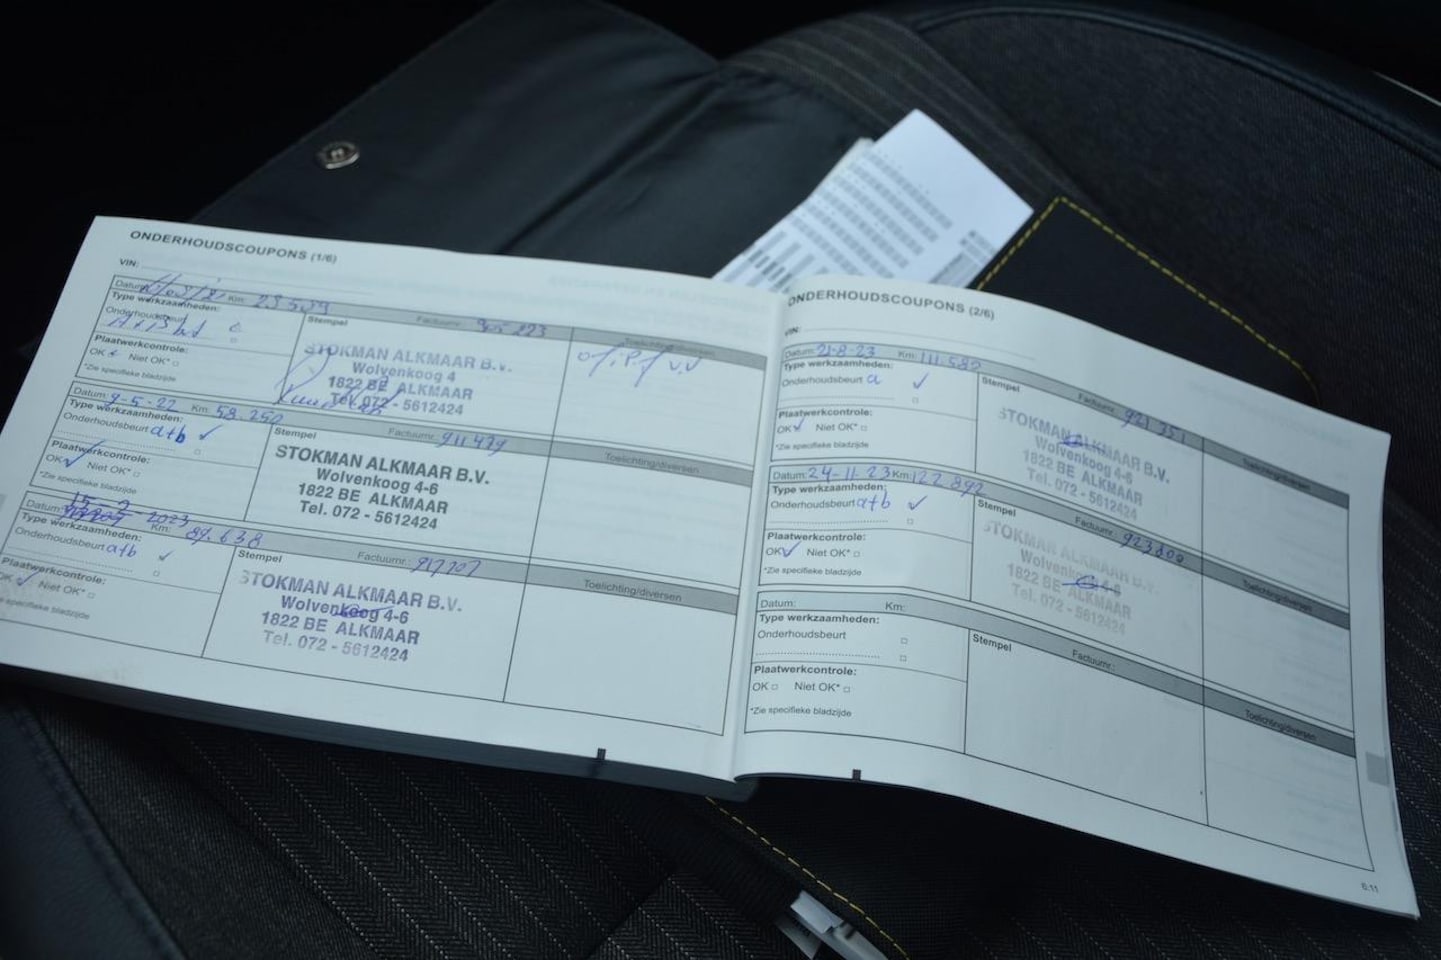 ONDERHOUDSCOUPONS (1/6)
VIN:
Datum: Km: 23539
Type werkzaamheden:
Onderhoudsbeurt
Plaatwerkcontrole:
OK Niet OK*
*Zie specifieke bladzijde
Stempel Factuurnr.: 905223
STOKMAN ALKMAAR B.V.
Wolvenkoog 4
1822 BE ALKMAAR
Tel. 072 - 5612424
Toelichting/diversen
Datum: 9-5-22 Km: 58.250
Type werkzaamheden:
Onderhoudsbeurt a+b ✓
Plaatwerkcontrole:
OK ✓ Niet OK*
*Zie specifieke bladzijde
Stempel Factuurnr.: 911489
STOKMAN ALKMAAR B.V.
Wolvenkoog 4-6
1822 BE ALKMAAR
Tel. 072 - 5612424
Toelichting/diversen
Datum: 15-2-2023 Km: 89.638
Type werkzaamheden:
Onderhoudsbeurt a+b ✓
Plaatwerkcontrole:
OK ✓ Niet OK*
*Zie specifieke bladzijde
Stempel Factuurnr.: 917707
STOKMAN ALKMAAR B.V.
Wolvenkoog 4-6
1822 BE ALKMAAR
Tel. 072 - 5612424
Toelichting/diversen
ONDERHOUDSCOUPONS (2/6)
VIN:
Datum: 21-8-23 Km: 111.582
Type werkzaamheden:
Onderhoudsbeurt a ✓
Plaatwerkcontrole:
OK ✓ Niet OK*
*Zie specifieke bladzijde
Stempel Factuurnr.: 921351
STOKMAN ALKMAAR B.V.
Wolvenkoog 4-6
1822 BE ALKMAAR
Tel. 072 - 5612424
Toelichting/diversen
Datum: 24-11-23 Km: 122892
Type werkzaamheden:
Onderhoudsbeurt a+b ✓
Plaatwerkcontrole:
OK ✓ Niet OK*
*Zie specifieke bladzijde
Stempel Factuurnr.: 923800
STOKMAN ALKMAAR B.V.
Wolvenkoog 4-6
1822 BE ALKMAAR
Tel. 072 - 5612424
Toelichting/diversen
Datum: Km:
Type werkzaamheden:
Onderhoudsbeurt
Plaatwerkcontrole:
OK Niet OK*
*Zie specifieke bladzijde
Stempel Factuurnr.:
Toelichting/diversen
6.11